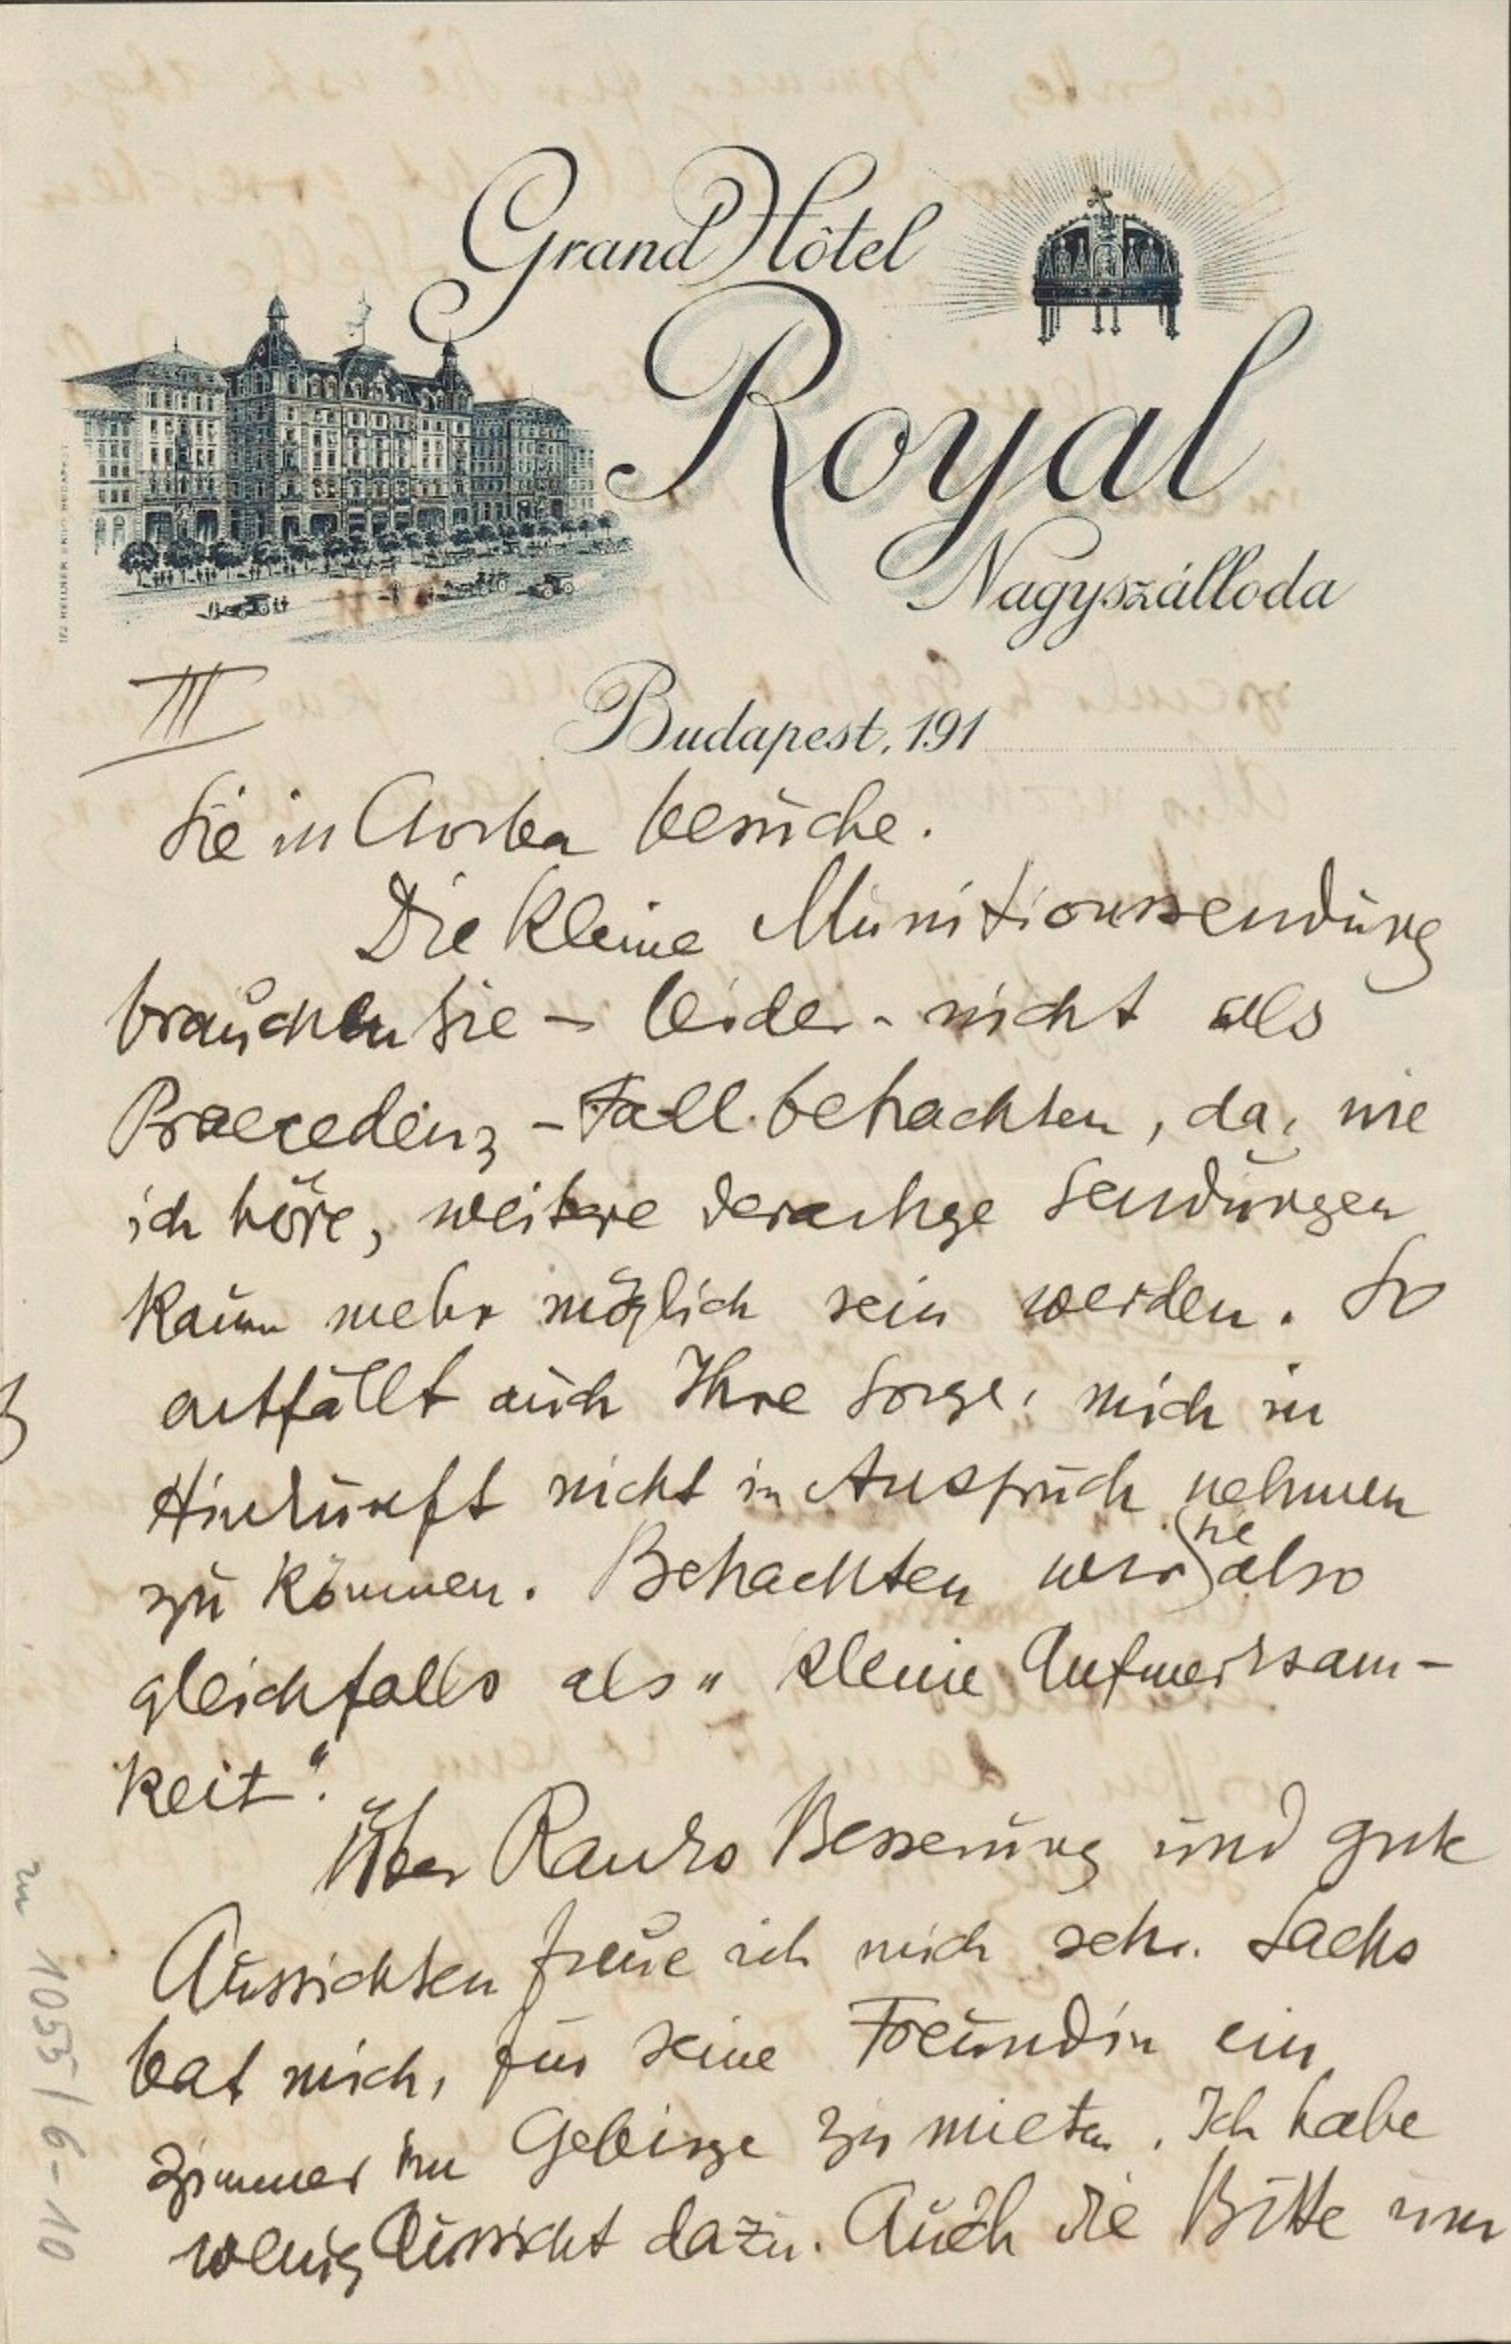 Grand Hôtel
Royal
Nagyszálloda
III
Budapest, 191
Sie in Csorba besuche.
Die kleine Munitionssendung
brauchen Sie – leider – nicht als
Praecedenz-Fall betrachten, da, wie
ich höre, weitere derartige Sendungen
kaum mehr möglich sein werden. So
entfällt auch Ihre Sorge, mich in
Hinkunft nicht in Anspruch nehmen
zu können. Betrachten wir sie also
gleichfalls als „kleine Aufmerksam-
keit“.
Über Rankos Besserung und gute
Aussichten freue ich mich sehr. Sachs
bat mich, für seine Freundin ein
Zimmer im Gebirge zu mieten. Ich habe
wenig Aussicht dazu. Auch die Bitte um
m 1055/6-10